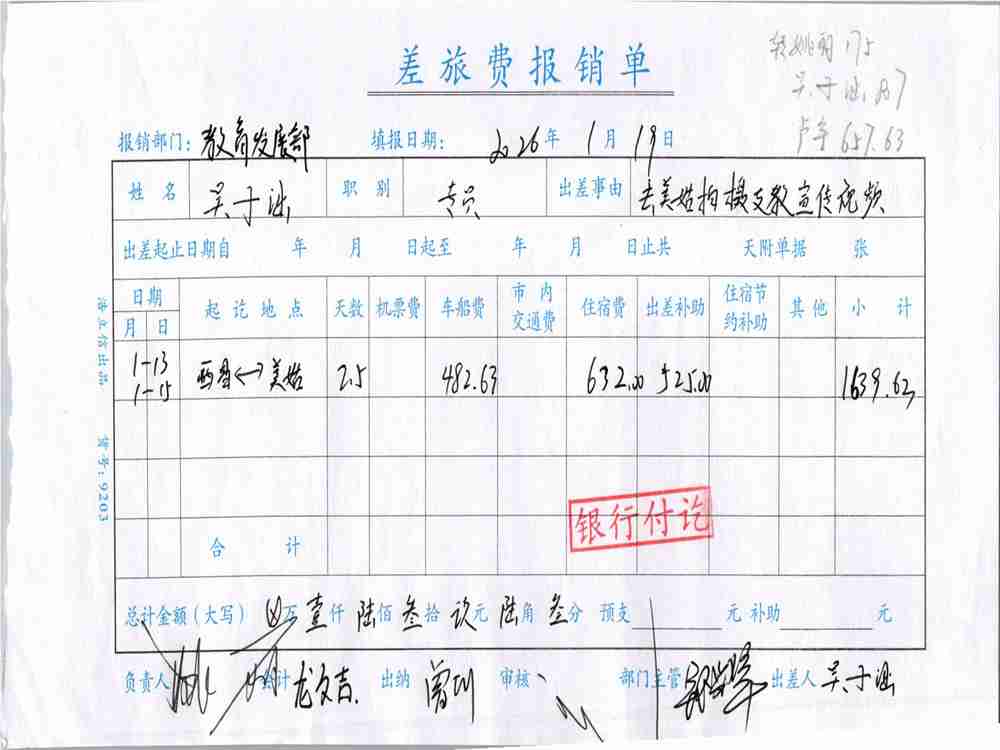 转姚丽 175
吴于泓 807
卢宇 657.63
差旅费报销单
报销部门：教育发展部 填报日期：2026年1月19日
姓名 吴于泓 职别 专员 出差事由 去美姑拍摄支教宣传视频
出差起止日期自 年 月 日起至 年 月 日止共 天附单据 张
日期 起讫地点 天数 机票费 车船费 市内交通费 住宿费 出差补助 住宿节约补助 其他 小计
月 日
1-13
1-15 西昌<->美姑 2.5 482.63 632.00 525.00 1639.63
货号：9203
银行付讫
合计
总计金额(大写) 万壹仟陆佰叁拾玖元陆角叁分 预支 元 补助 元
负责人 会计 龙文吉 出纳 曾 审核 部门主管 出差人 吴于泓